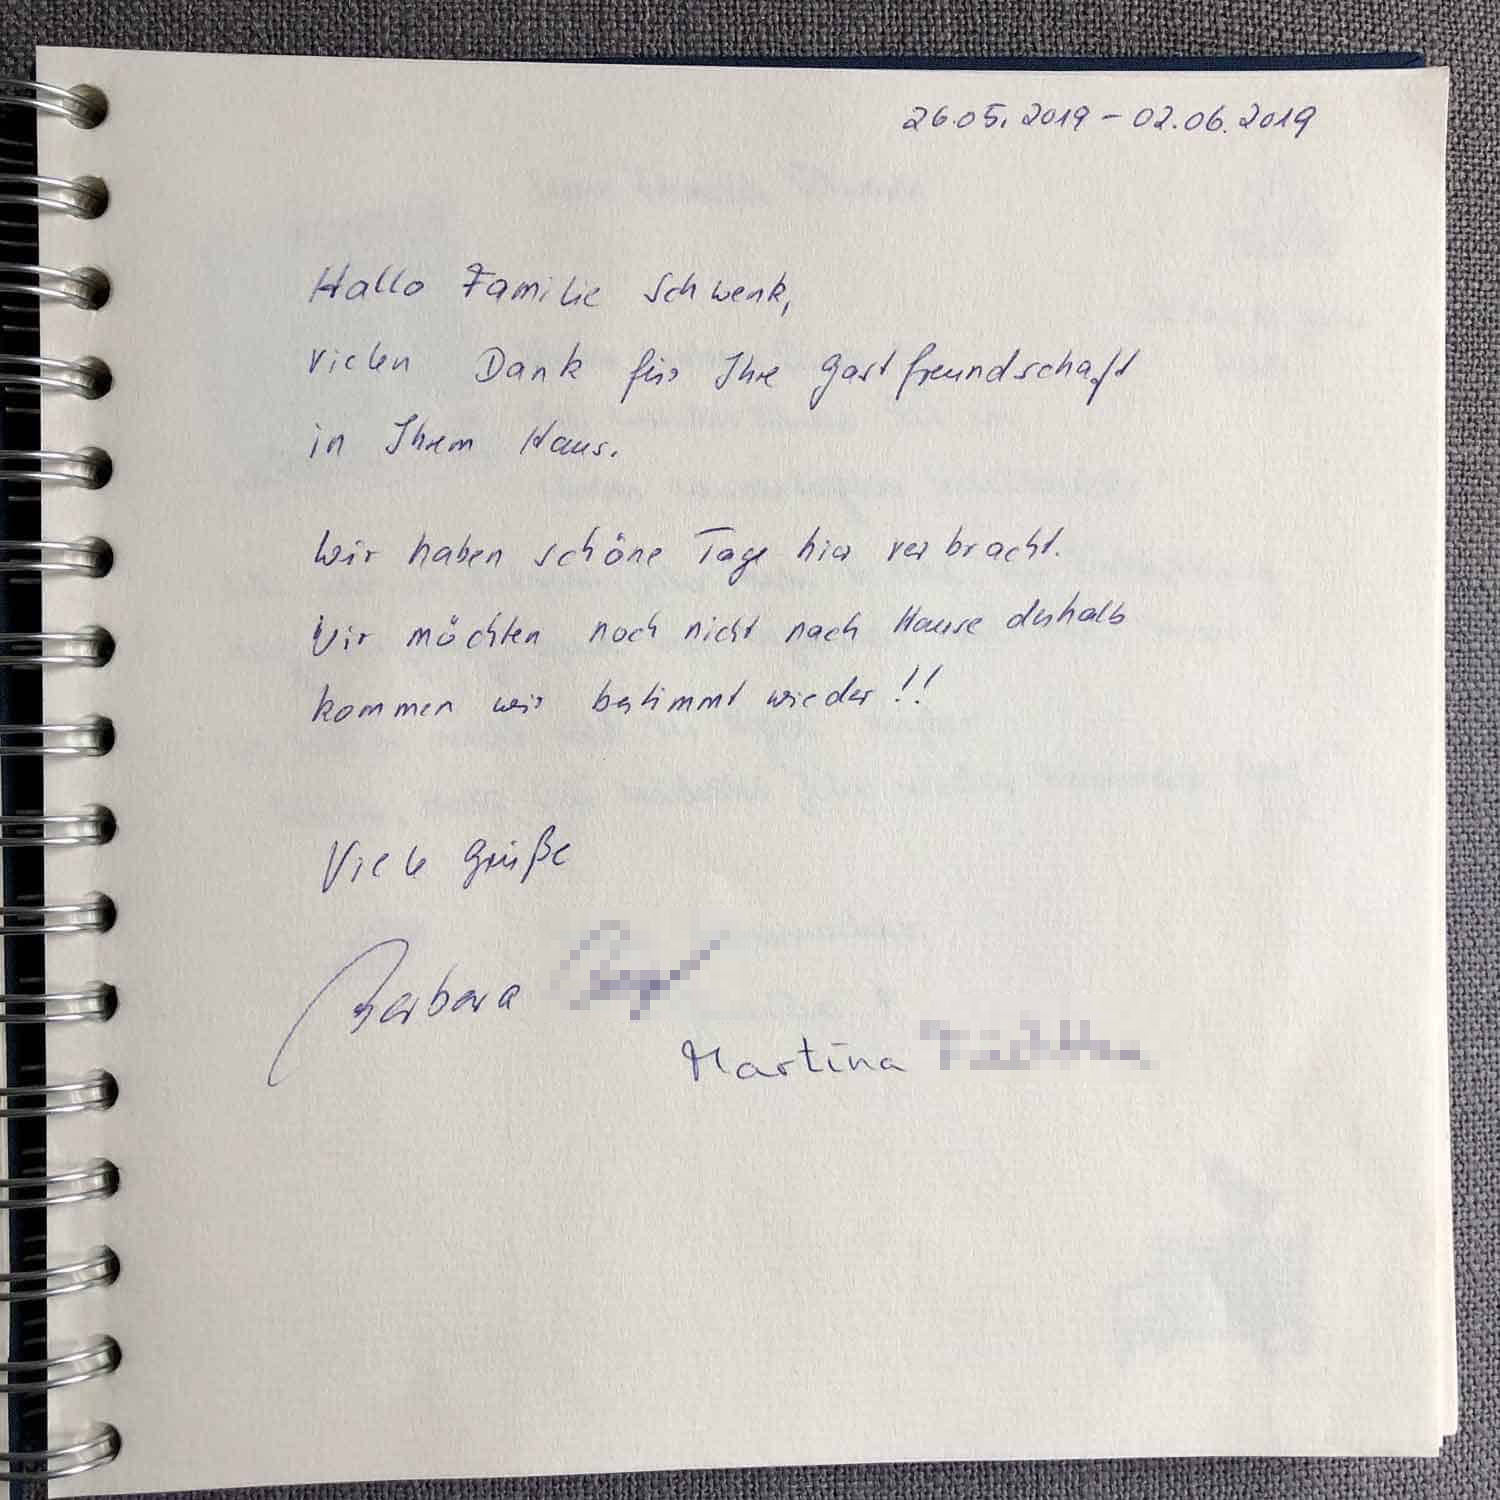 26.05.2019 - 02.06.2019
Hallo Familie Schwenk,
vielen Dank für Ihre Gastfreundschaft
in Ihrem Haus.
Wir haben schöne Tage hier verbracht.
Wir möchten noch nicht nach Hause deshalb
kommen wir bestimmt wieder!!
Viele Grüße
Barbara
Martina